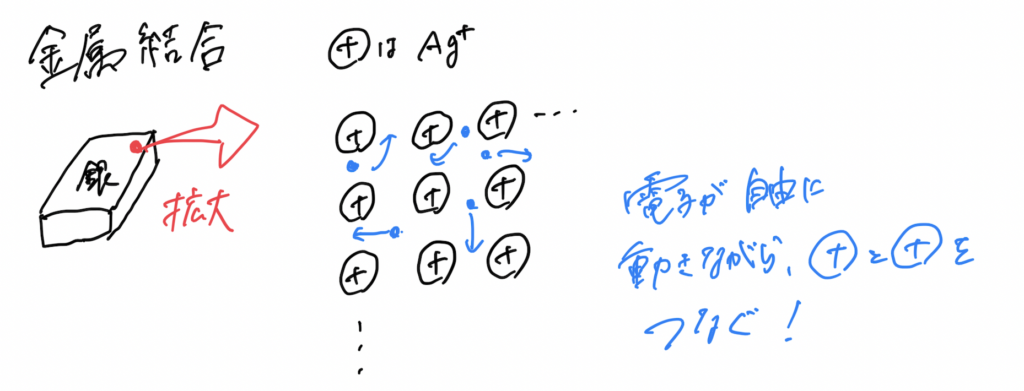 金属結合
⊕は Ag⁺
銀
拡大
⊕ ⊕ ⊕ …
⊕ ⊕ ⊕
⊕ ⊕ ⊕
⋮
電子が自由に
動きながら、⊕と⊕を
つなぐ!